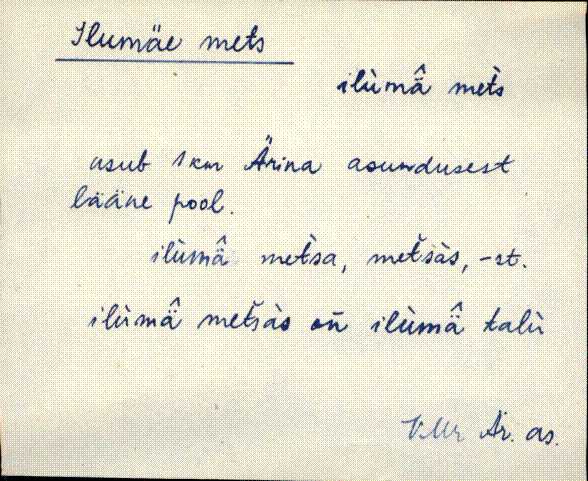 Ilumäe mets
ilùmä̂ met̀s
asub 1 km Ärina asundusest
lääne pool.
ilùmä̂ met̀sa, metsàs, -st.
ilùmä̂ metsàs on̄ ilùmä̂ talù
VMr Är. as.